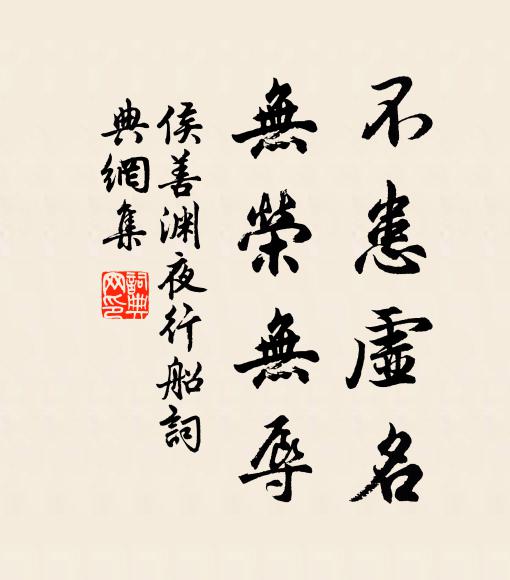 不患虛名
無榮無辱
侯善淵夜行船詞
典網集
詞典
网印